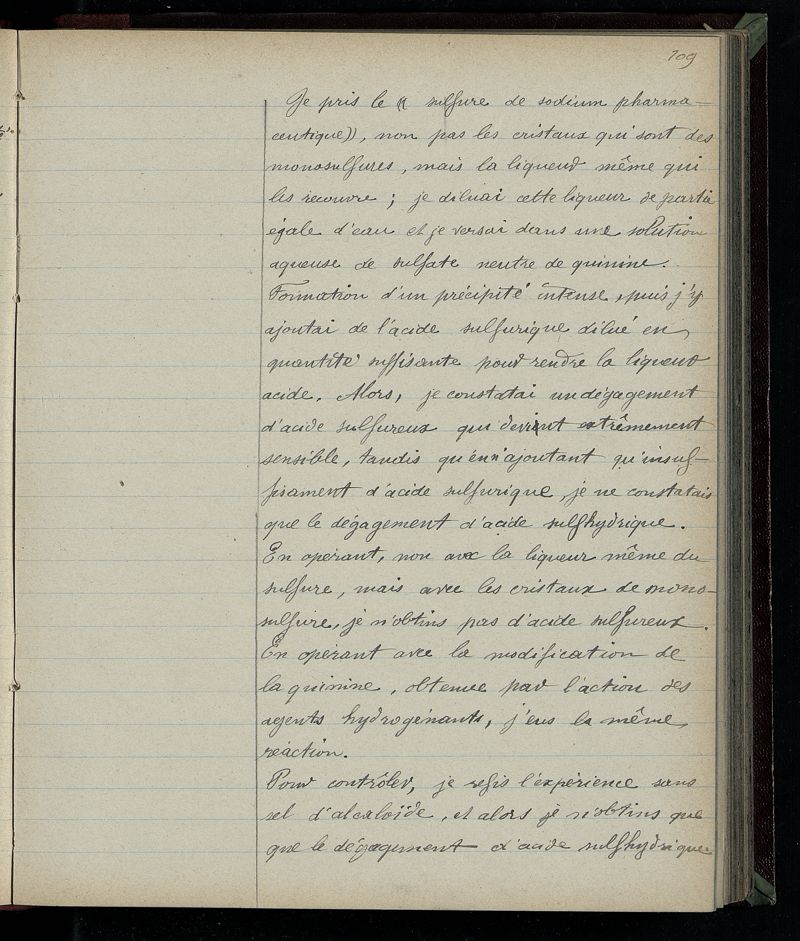 109
Je pris le (( sulfure de sodium pharma-
ceutique)), non pas les cristaux qui sont des
monosulfures, mais la liqueur même qui
les recouvre ; je diluai cette liqueur de partie
égale d'eau et je versai dans une solution
aqueuse de sulfate neutre de quinine.
Formation d'un précipité intense, puis j'y
ajoutai de l'acide sulfurique dilué en
quantité suffisante pour rendre la liqueur
acide. Alors, je constatai un dégagement
d'acide sulfureux qui devint extrêmement
sensible, tandis qu'en n'ajoutant qu'insuf-
fisament d'acide sulfurique, je ne constatais
que le dégagement d'acide sulfhydrique.
En opérant, non avec la liqueur même du
sulfure, mais avec les cristaux de mono-
sulfure, je n'obtins pas d'acide sulfureux.
En opérant avec la modification de
la quinine, obtenue par l'action des
agents hydrogénants, j'eus la même
réaction.
Pour contrôler, je refis l'expérience sans
sel d'alcaloïde, et alors je n'obtins que
que le dégagement d'acide sulfhydrique